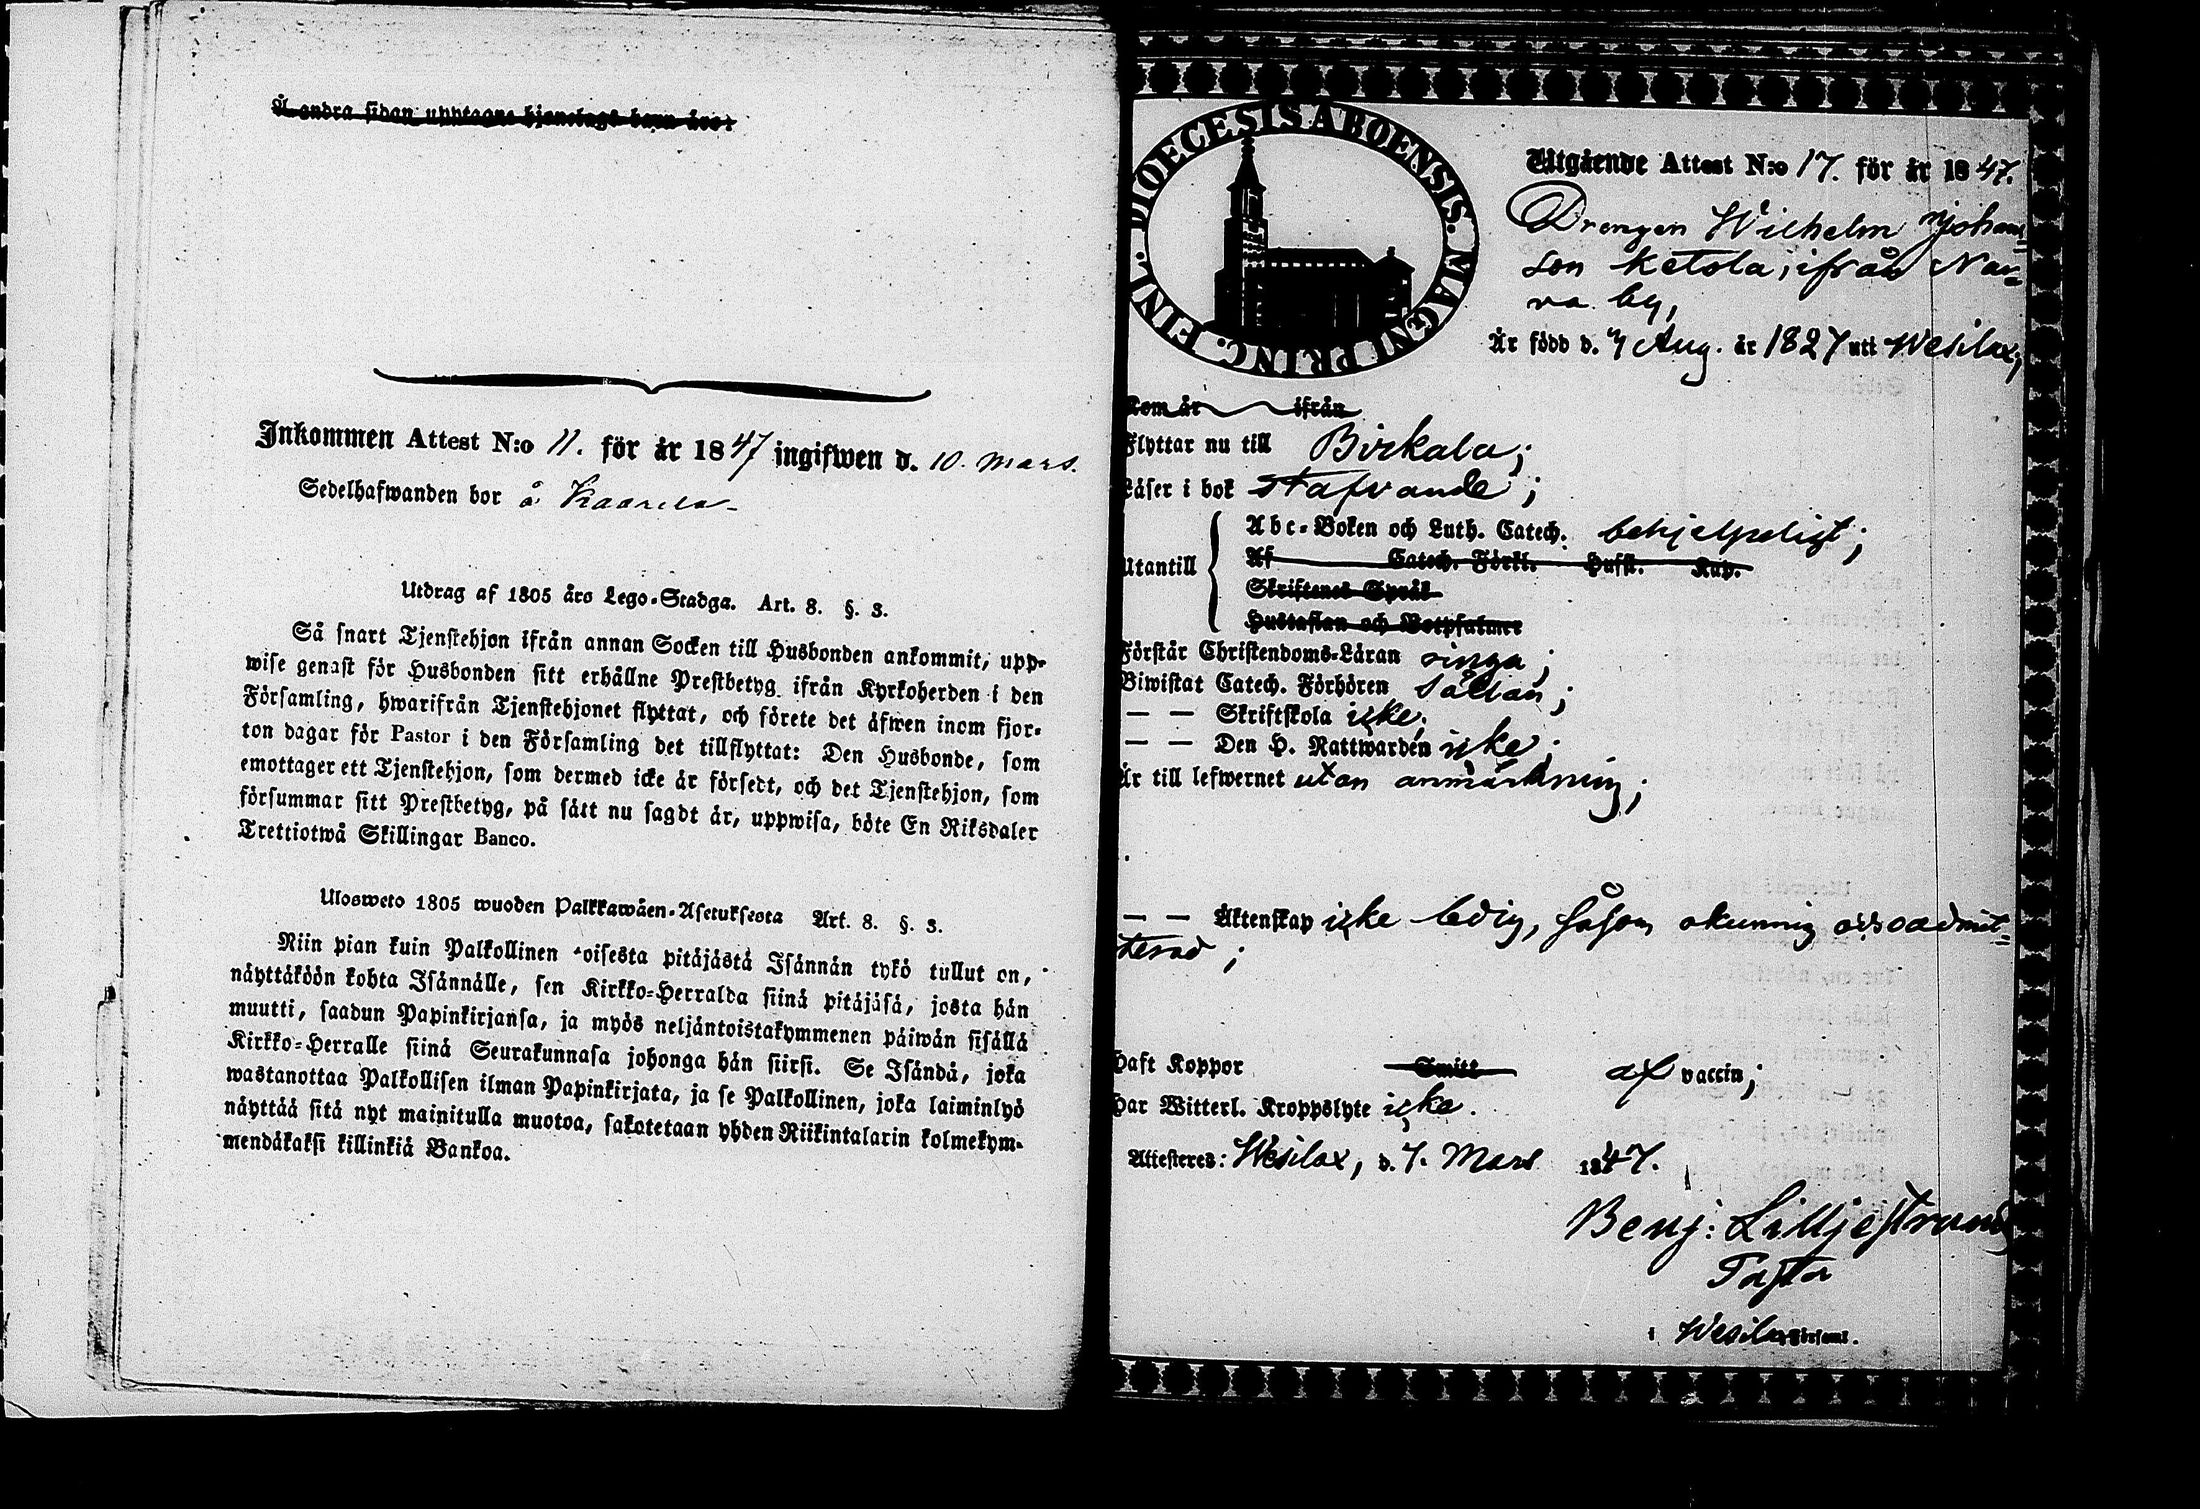 Å andra sidan upptagne tjenstehjons benn äro:
Inkommen Attest N:o 11. för år 1847 ingifwen d. 10. Mars.
Sedelhafwanden bor å Kaarila
Utdrag af 1805 års Lego-Stadga. Art. 8. §. 3.
Så snart Tjenstehjon ifrån annan Socken till Husbonden ankommit, upp-
wise genast för Husbonden sitt erhållne Prestbetyg ifrån Kyrkoherden i den
Församling, hwarifrån Tjenstehjonet flyttat, och förete det äfwen inom fjor-
ton dagar för Pastor i den Församling det tillflyttat: Den Husbonde, som
emottager ett Tjenstehjon, som dermed icke är försedt, och det Tjenstehjon, som
försummar sitt Prestbetyg, på sätt nu sagdt är, uppwisa, böte En Riksdaler
Trettiotwå Skillingar Banco.
Ulosweto 1805 wuoden Palkkawäen-Asetuksesta Art. 8. §. 3.
Niin pian kuin Palkollinen toisesta pitäjästä Isännän tykö tullut on,
näyttäköön kohta Isännälle, sen Kirkko-Herralda siinä pitäjäsä, josta hän
muutti, saadun Papinkirjansa, ja myös neljäntoistakymmenen päiwän sisällä
Kirkko-Herralle siinä Seurakunnasa johonga hän siirsi. Se Isändä, joka
wastanottaa Palkollisen ilman Papinkirjata, ja se Palkollinen, joka laiminlyö
näyttää sitä nyt mainitulla muotoa, sakotetaan yhden Riikintalarin kolmekym-
mendäkaksi killinkiä Bankoa.
DIOECESIS ABOENSIS. MAGNI PRINC. FINL.
Utgående Attest N:o 17. för år 1847.
Drengen Wilhelm Johans-
son Ketola, ifrån Nar-
va by,
Är född d. 7 Aug. år 1827 uti Wesilax,
Kom år ifrån
Flyttar nu till Birkala;
Läser i bok stafvande;
Utantill
Abc-Boken och Luth. Catech. behjelpeligt;
Af Catech. Förkl. Hufst. Kap.
Skriftenes Språk
Hustaflan och Botpsalmer
Förstår Christendoms-Läran ringa;
Biwistat Catech. Förhören sällan;
— — Skriftskola icke;
— — Den H. Nattwarden icke;
Är till lefwernet utan anmärkning;
— — Äktenskap icke ledig, såsom okunnig och oadmit-
terad;
Haft Koppor Smitt af vaccin;
Har Witterl. Kroppslyte icke.
Attesteres: Wesilax, d. 7. Mars 1847.
Benj: Lilljestrand
Pastor
i Wesilax Församl.